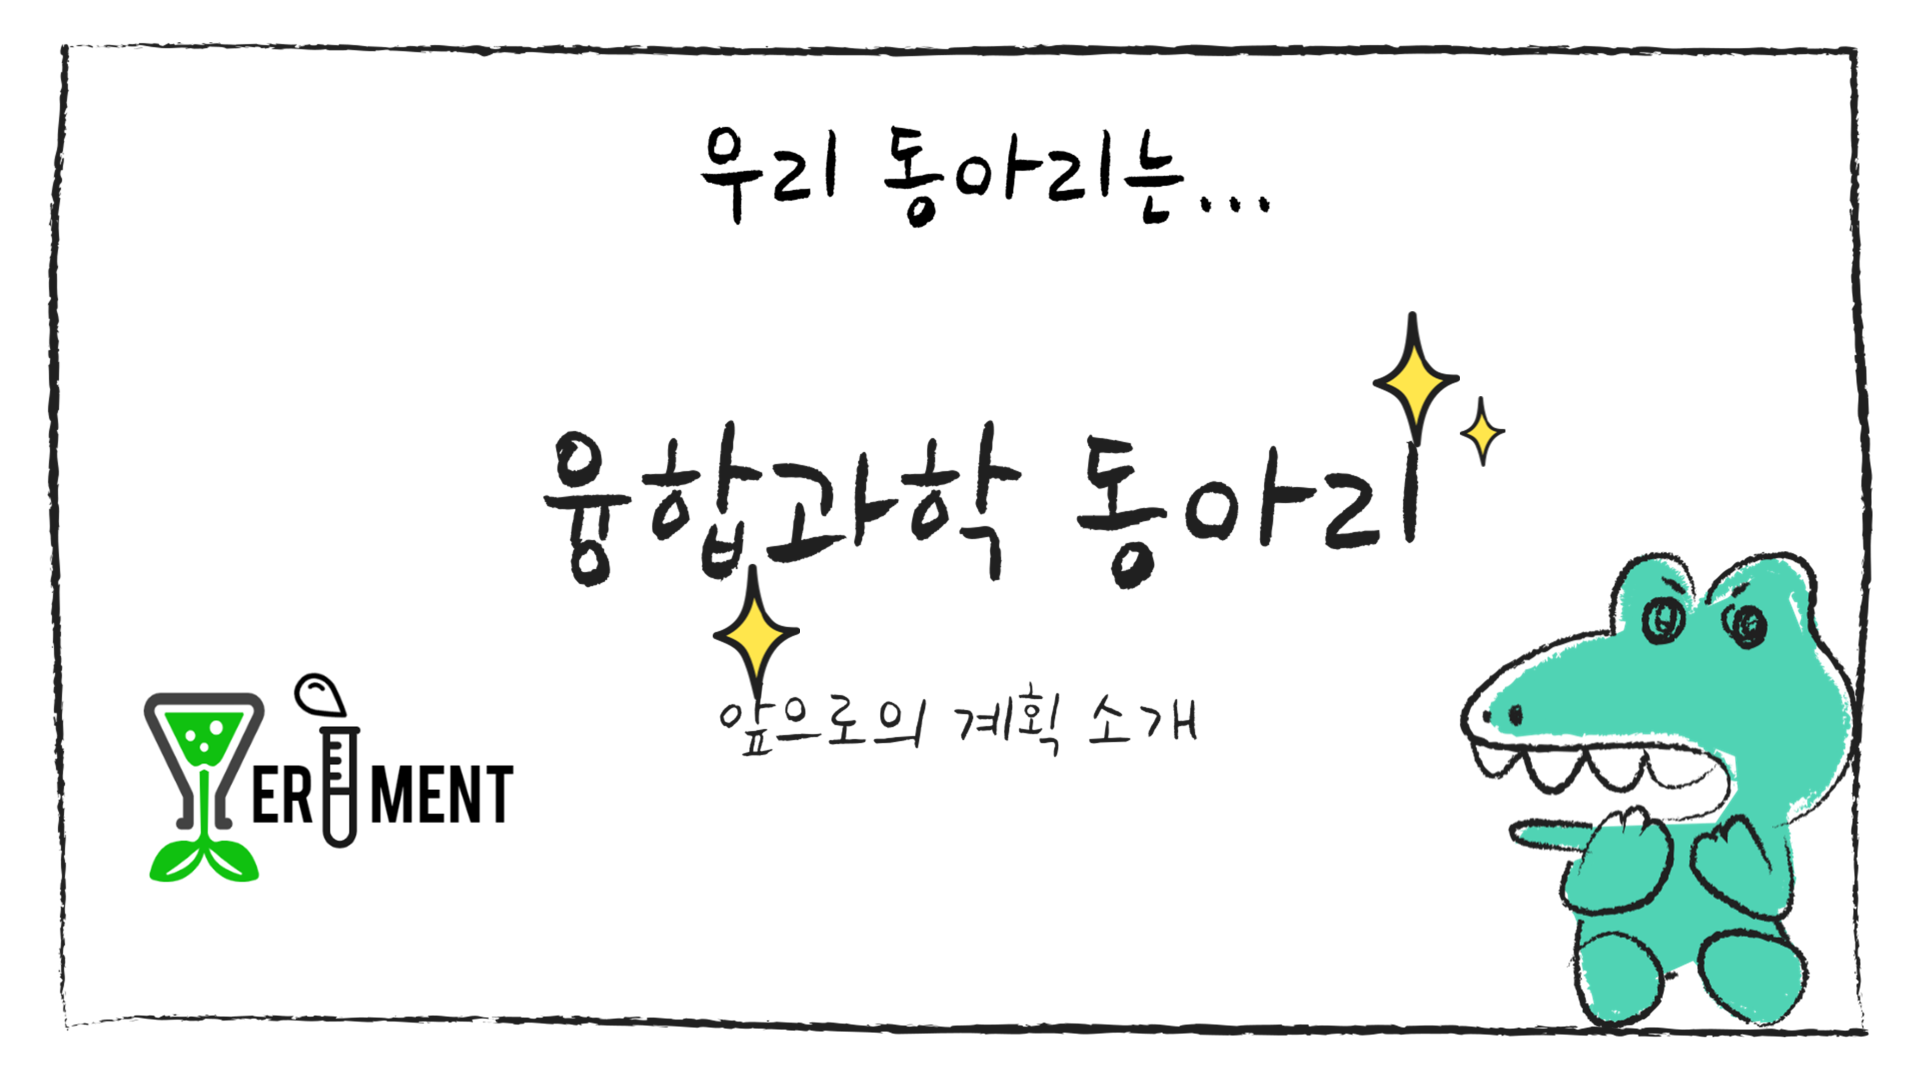 우리 동아리는...
융합과학 동아리
앞으로의 계획 소개
YERIMENT